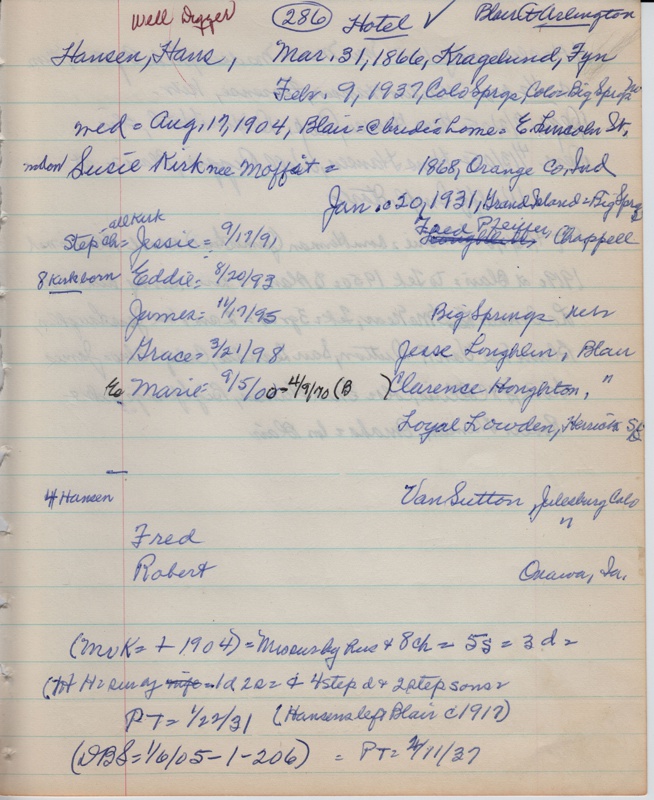 Well Digger 286 Hotel ✓ Blair & Arlington
Hansen, Hans, Mar. 31, 1866, Kragelund, Fyn
Febr. 9, 1937, Colo Sprgs, Colo = Big Sprgs
wed = Aug. 17, 1904, Blair = @ brides home = E. Lincoln St,
Susie Kirk nee Moffat = 1868, Orange Co, Ind
Jan. 20, 1931, Grand Island = Big Sprgs
all Kirk Fred Pfeiffer,
Step ch = Jessie = 9/17/91 Chappell
8 Kirk born Eddie = 8/20/93
James = 11/17/95 Big Springs
Grace = 3/21/98 Jesse Loughlin, Blair
Marie = 9/5/00 = 4/9/70 (B ) Clarence Hongtton, "
Loyal Lowden, Herrick SD
4 Hansen Van Sutton, Julesburg Colo
"
Fred
Robert Onawa, Ia.
(MvK = + 1904) = by Hus + 8 ch = 5s = 3d =
(H H = 1d 2s = + 4 step d + 2 step sons =
PT = 1/22/31 (Hansens left Blair c 1917)
(DBS = 1/6/05 - 1 - 206) = PT = 2/11/37